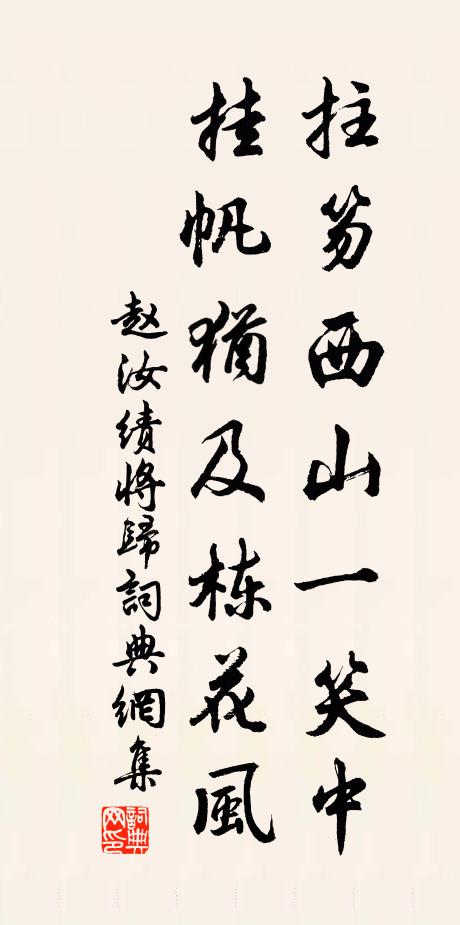 拄笏西山一笑中
挂帆猶及棟花風
赵汝績將歸詞典網集
詞典网印